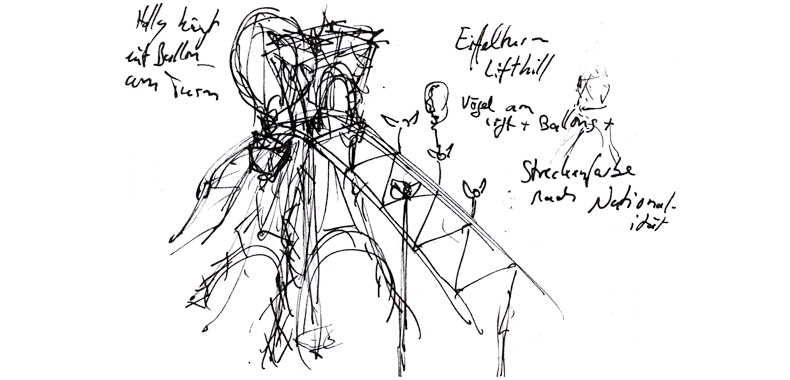 Holly hängt
mit Ballon
am Turm
Eiffelturm
Lifthill
Vögel am
Lift + Ballons +
Streckenfarbe
nach National-
ität